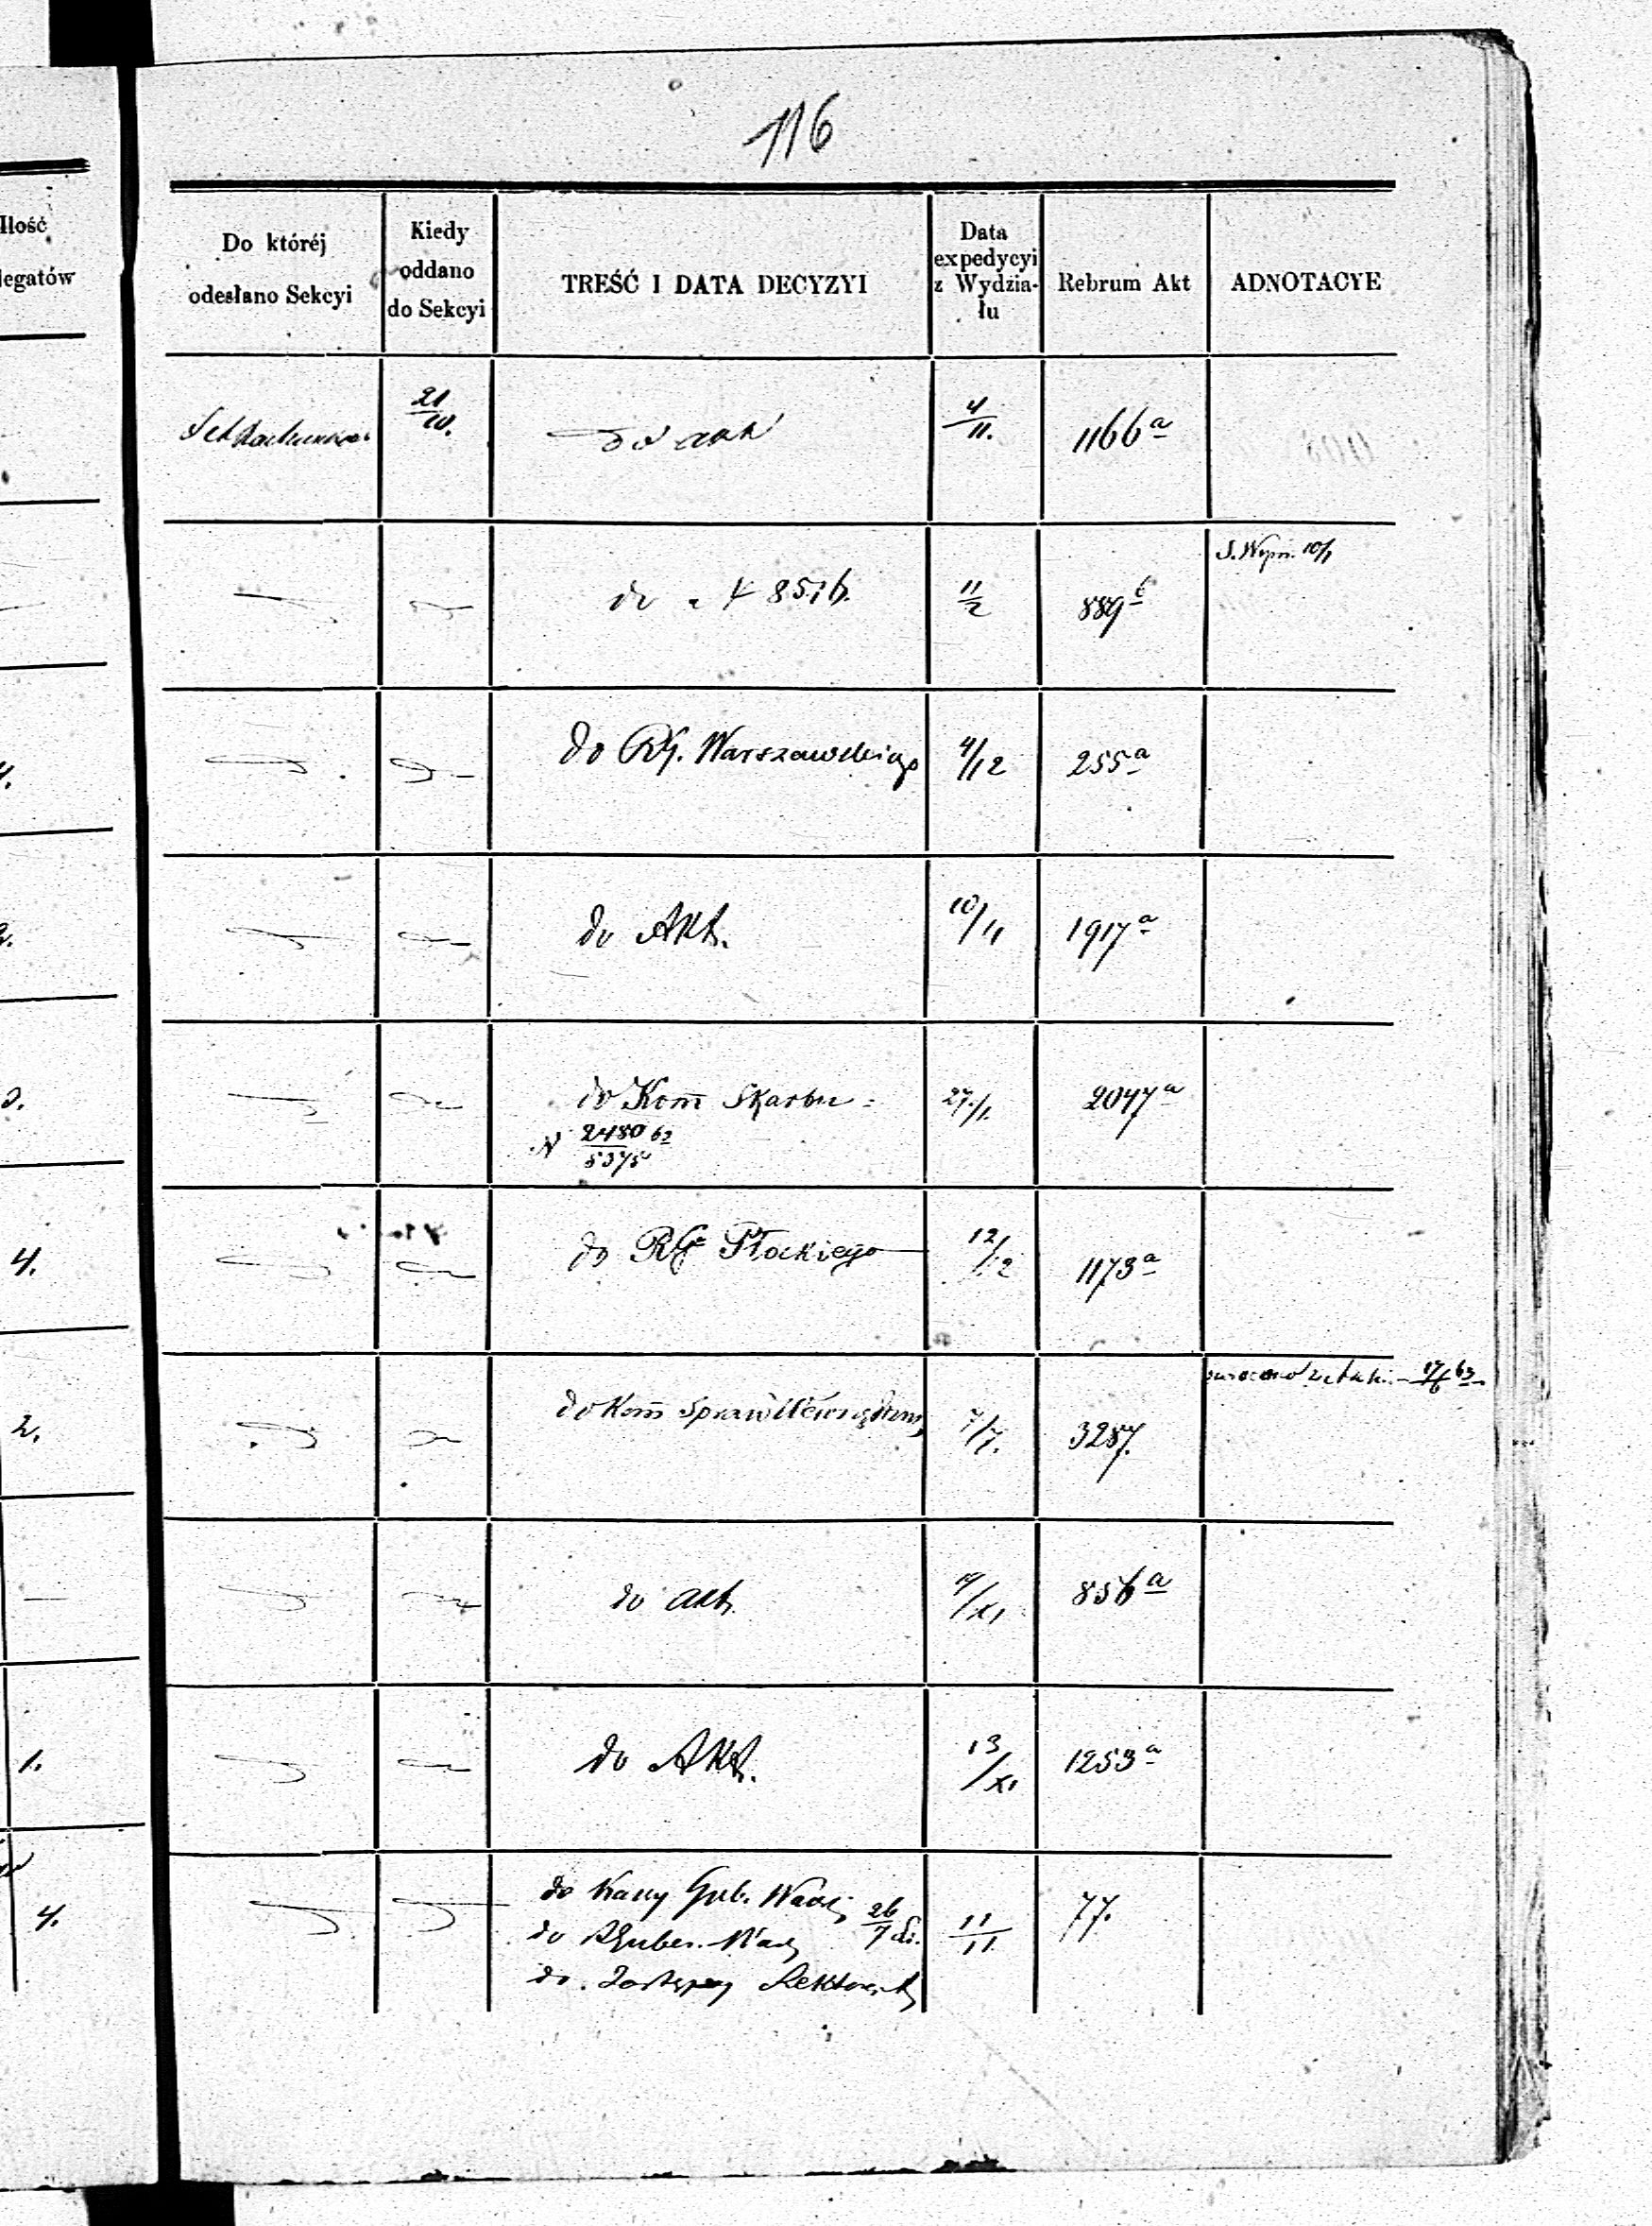 116
Ilość
legatów
Do któréj
odesłano Sekcyi
Kiedy
oddano
do Sekcyi
TREŚĆ I DATA DECYZYI
Data
expedycyi
z Wydzia-
łu
Rebrum Akt
ADNOTACYE
21/10.
do akt
4/11.
1166 a
do 8516.
11/2
889 b
10/1
4.
do RG. Warszawskiego
4/12
255 a
2.
do Akt.
10/11
1917 a
3.
do Kom Skarbu
N 2480 62
5375
27/1.
2047 a
4.
do RG Płockiego
12/12
1173 a
2.
do Kom Spraw Wewnętrznych
7/7.
3287.
17/6 63
do akt.
19/XI
856 a
1.
do Akt.
13/XI
1253 a
4.
do Kassy Gub. 26/7
do
do. Zastępcy
11/11
77.